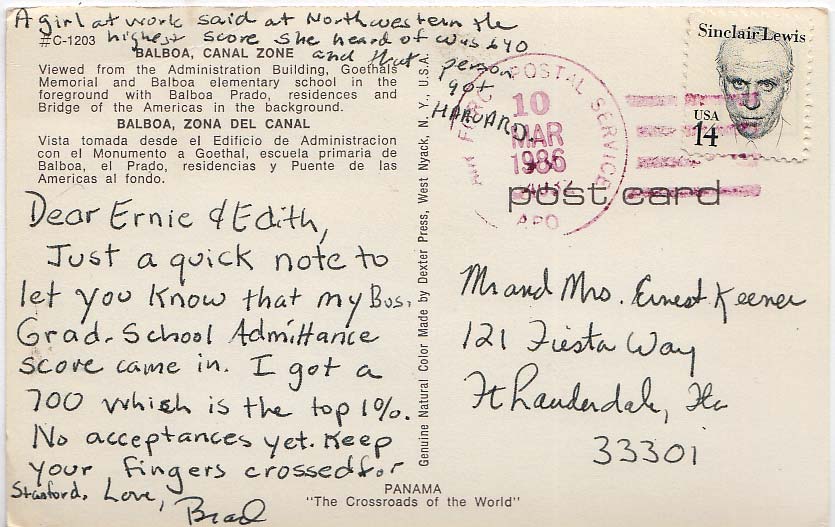 A girl at work said at Northwestern the
highest score she heard of was 640
and that person
got
HARVARD.
#C-1203
BALBOA, CANAL ZONE
Viewed from the Administration Building, Goethals
Memorial and Balboa elementary school in the
foreground with Balboa Prado, residences and
Bridge of the Americas in the background.
BALBOA, ZONA DEL CANAL
Vista tomada desde el Edificio de Administracion
con el Monumento a Goethal, escuela primaria de
Balboa, el Prado, residencias y Puente de las
Americas al fondo.
Dear Ernie & Edith,
Just a quick note to
let you know that my Bus.
Grad. School Admittance
score came in. I got a
700 which is the top 1%.
No acceptances yet. Keep
your fingers crossed for
Stanford. Love,
Brad
Genuine Natural Color Made by Dexter Press, West Nyack, N. Y., U.S.A.
PANAMA
"The Crossroads of the World"
Sinclair Lewis
USA
14
FORCE POSTAL SERVICE
10
MAR
1986
APO
post card
Mr and Mrs. Ernest Keener
121 Fiesta Way
Ft Lauderdale, Fla
33301